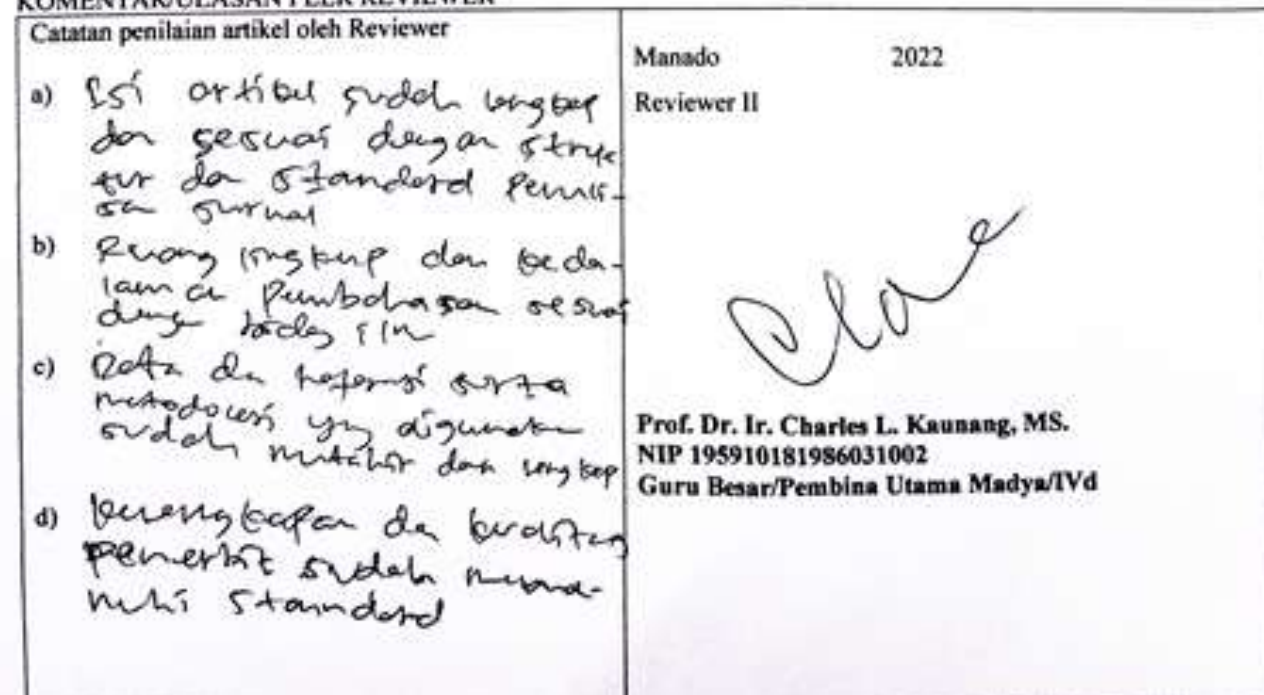 KOMENTAR/ULASAN PEER REVIEWER
Catatan penilaian artikel oleh Reviewer
a) Isi artikel sudah lengkap
dan sesuai dengan struk
tur dan standard penuli-
san jurnal
b) Ruang lingkup dan keda-
laman pembahasan sesuai
dengan bidang ilmu
c) Data dan referensi serta
metodologi yang digunakan
sudah mutahir dan lengkap
d) kelengkapan dan kualitas
penerbit sudah meme-
nuhi standard
Manado 2022
Reviewer II
Prof. Dr. Ir. Charles L. Kaunang, MS.
NIP 195910181986031002
Guru Besar/Pembina Utama Madya/IVd